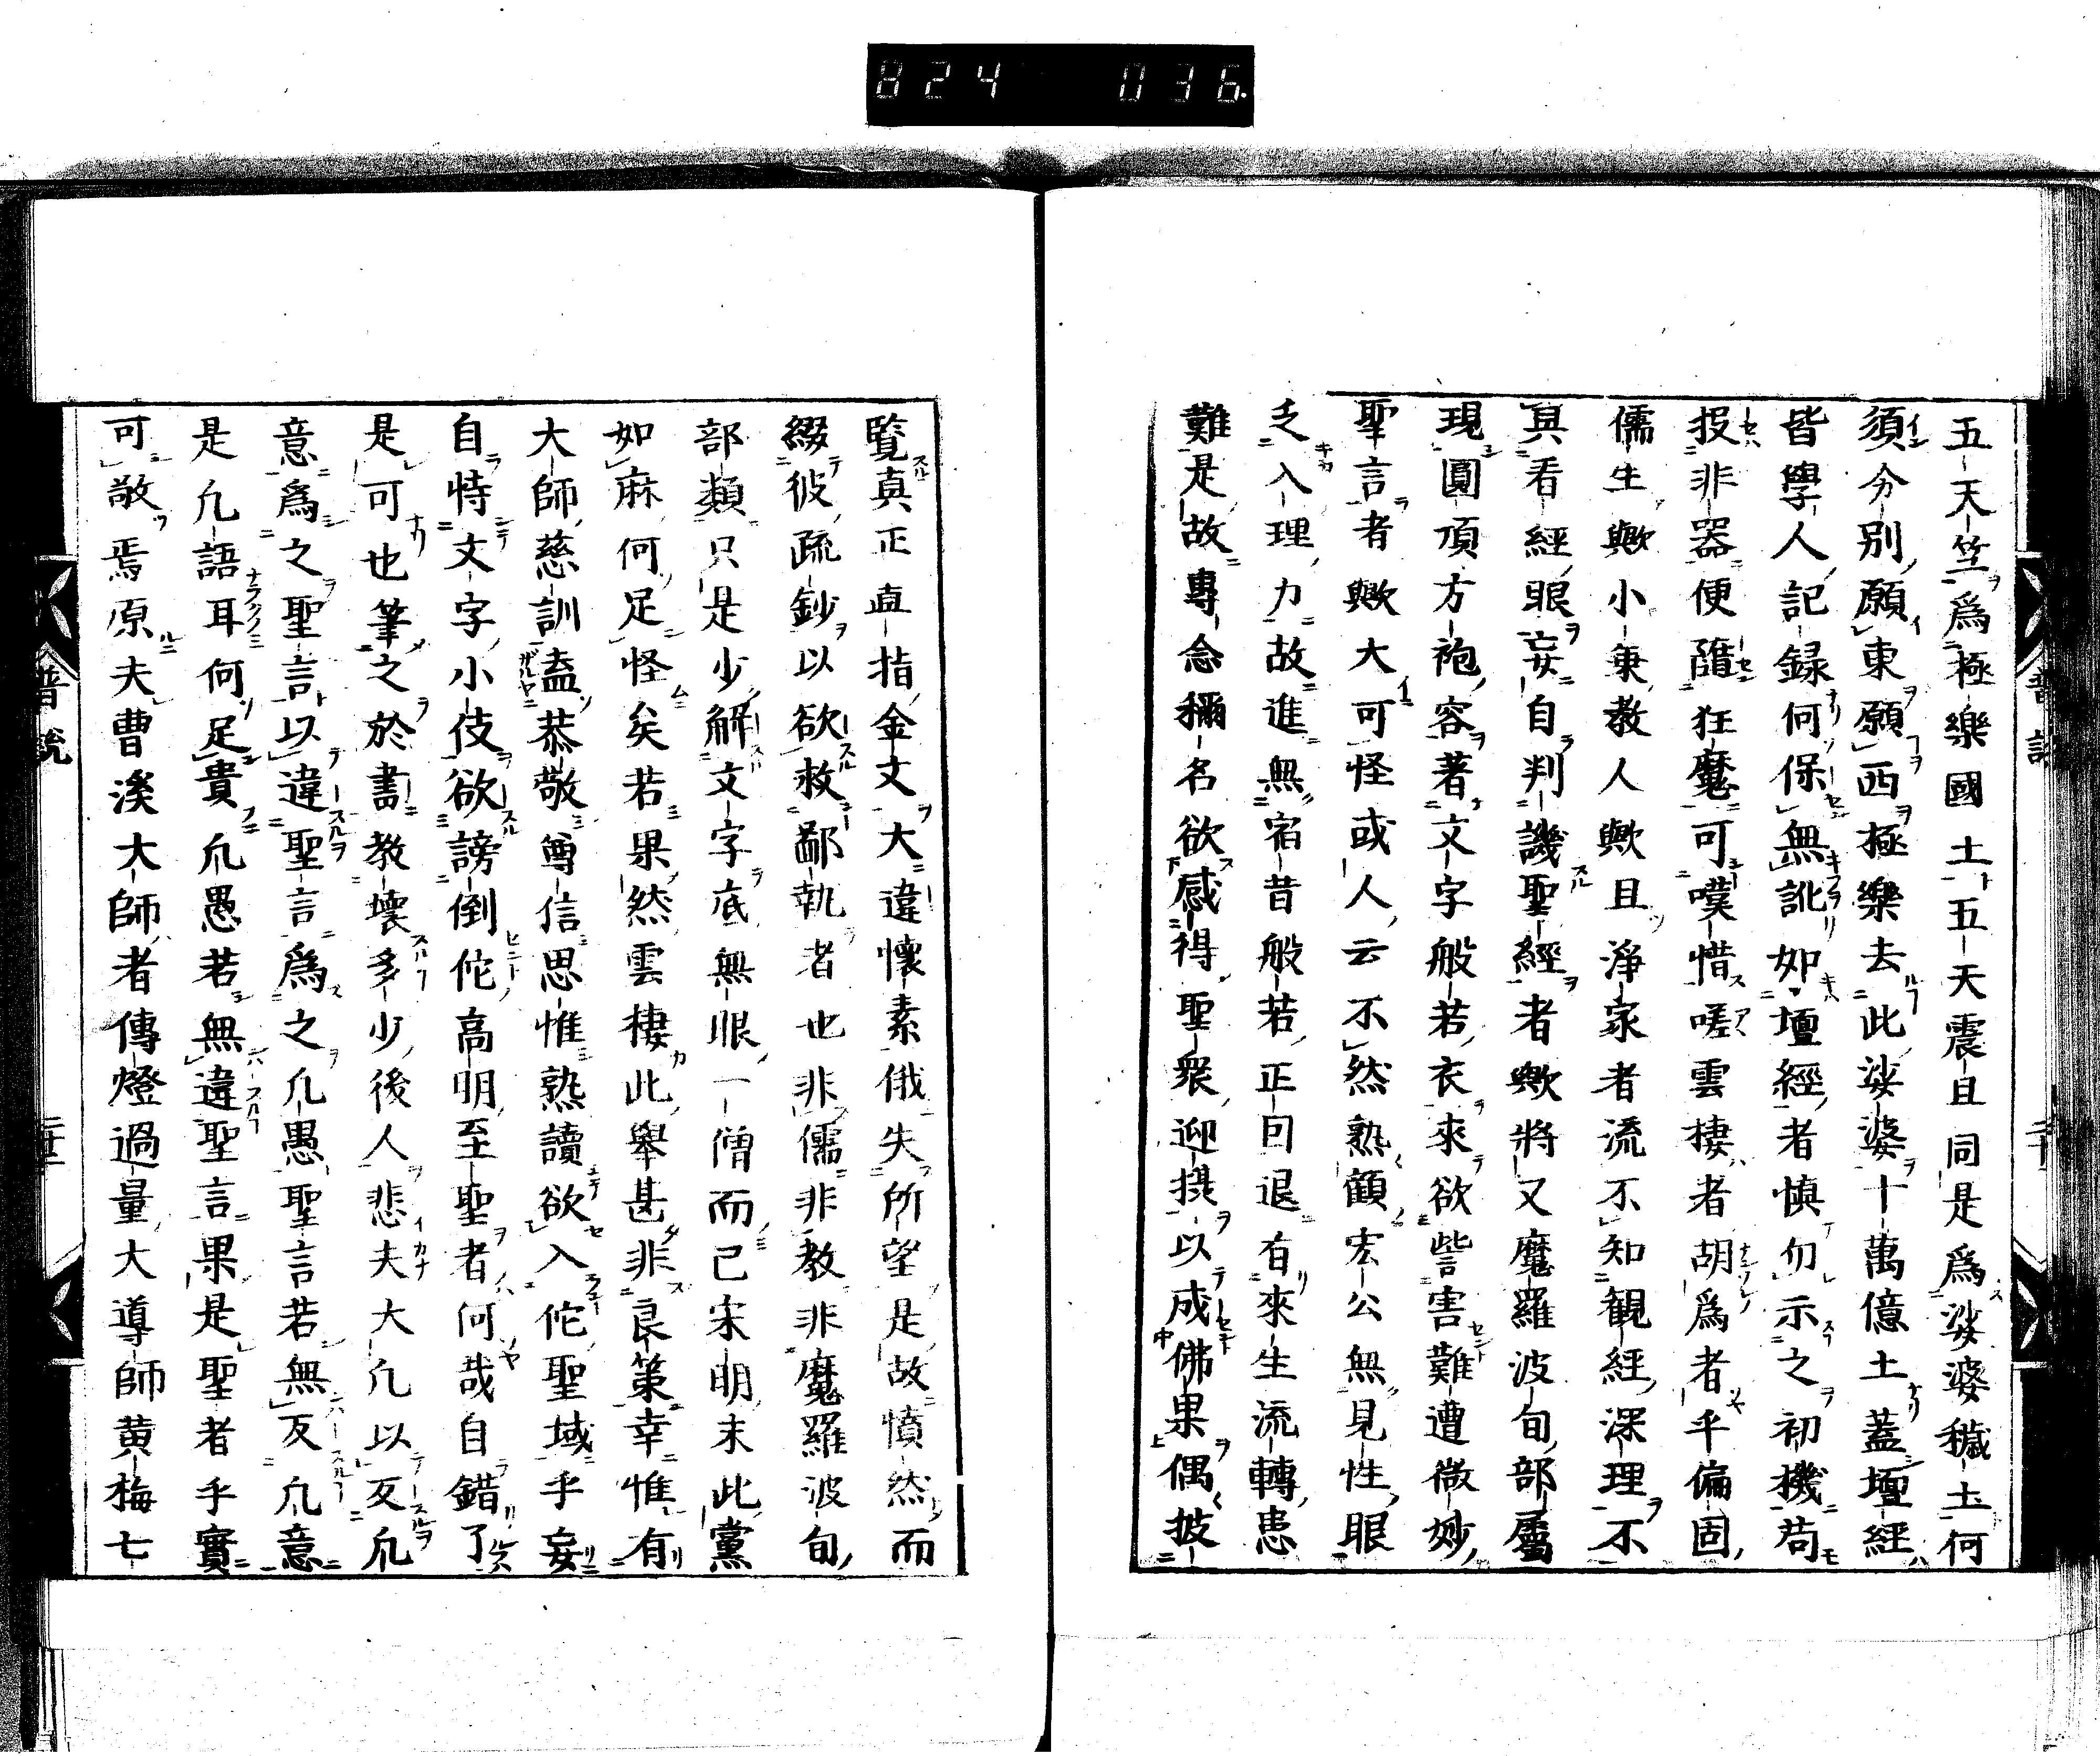 824 036
五天竺爲極樂國土五天震旦同是爲娑婆穢土何
須分別願東願西極樂去此娑婆十萬億土蓋壇經
皆學人記録何保無訛如壇經者慎勿示之初機苟
投非器便隨狂魔可嘆惜嗟雲棲者胡爲者乎偏固
儒生歟小乗教人歟且淨家者流不知觀經深理不
具看經眼妄自判譏聖經者歟將又魔羅波旬部屬
現圓頂方袍容著文字般若衣來欲訾害難遭微妙
聖言者歟大可怪或人云不然熟顧宏公無見性眼
乏入理力故進無宿昔般若正因退有來生流轉患
難是故專念稱名欲感得聖衆迎摂以成佛果偶披
普説
二十
覧真正直指金文大違懐素俄失所望是故憤然而
綴彼疏鈔以欲救鄙執者也非儒非教非魔羅波旬
部類只是少解文字底無眼一僧而已宋明末此黨
如麻何足怪矣若果然雲棲此舉甚非良策幸惟有
大師慈訓盍恭敬尊信思惟熟讀欲入佗聖域乎妄
自恃文字小伎欲謗倒佗高明至聖者何哉自錯了
是可也筆之於書教壊多少後人悲夫大凡以反凡
意爲之聖言以違聖言爲之凡愚聖言若無反凡意
是凡語耳何足貴凡愚若無違聖言果是聖者乎實
可敬焉原夫曹溪大師者傳燈過量大導師黄梅七
普説
二十一